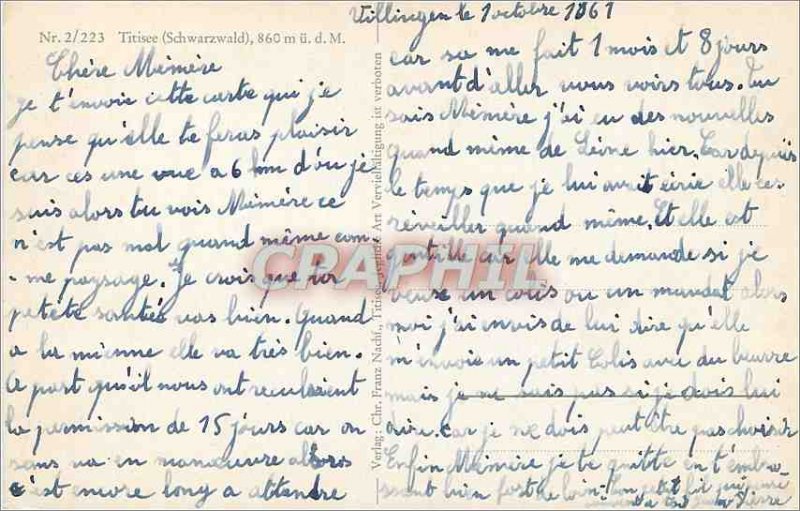 Villingen le 1 octobre 1961
Nr. 2/223 Titisee (Schwarzwald), 860 m ü. d. M.
Chère Mémère
Je t'envoie cette carte qui je
pense qu'elle te feras plaisir
car ces une vue a 6 km d'ou je
suis alors tu vois Mémére ce
n'est pas mal quand même com
- me paysage. Je crois que ton
petete santée vas bien. Quand
a la mienne elle va très bien.
A part qu'il nous ont reculaient
la permission de 15 jours car on
sans va en manœuvre alors
c'est encore long a attendre
Verlag: Chr. Franz Nachf., Titisee. Jegliche Art Vervielfältigung ist verboten
car sa me fait 1 mois et 8 jours
avant d'aller vous voirs tous. Tu
sais Mémère j'ai eu des nouvelles
quand même de hier. Car depuis
le temps que je lui avait écrie elle ces
réveiller quand même. Et elle est
gentille car elle me demande si je
veux un colis ou un mandat alors
moi j'ai envis de lui dire qu'elle
m'envoie un petit Colis avec du beurre
mais je ne sais pas si je dois lui
dire. car je ne dois peut être pas choisir
Enfin Mémère je te quitte en t'embra-
ssant bien fort de loin. Ton petit fil qui
a tous Pierre
CRAPHIL